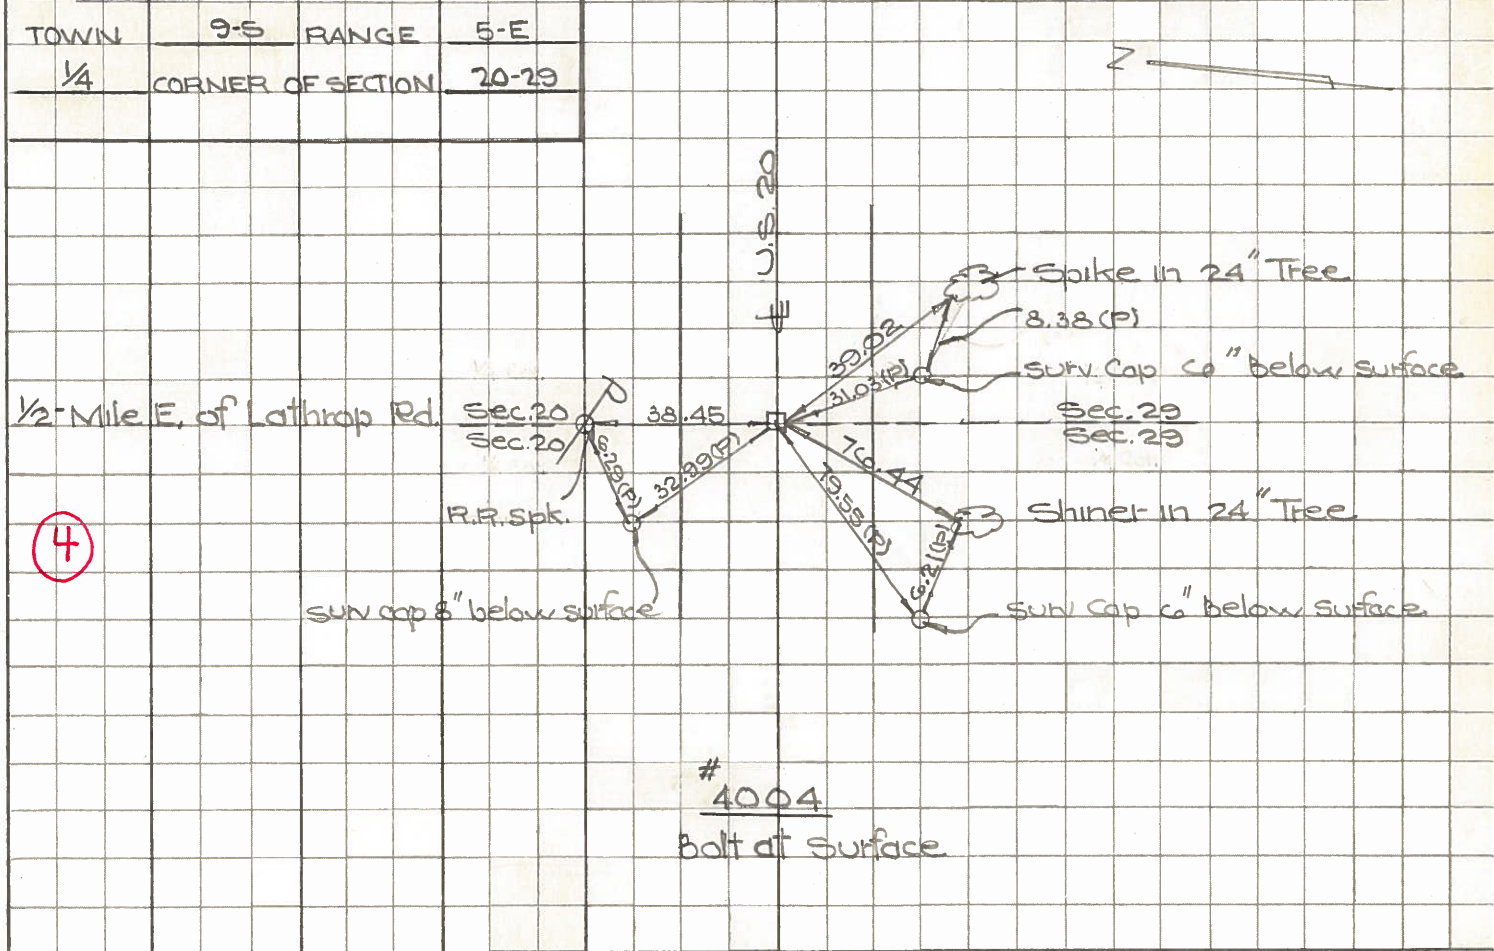 TOWN 9-S RANGE 5-E
1/4 CORNER OF SECTION 20-29
Z
U.S. 20
Spike in 24" Tree
39.02
8.38(P)
31.03(P)
Surv. Cap 6" Below Surface
1/2-Mile E. of Lathrop Rd.
Sec.20
Sec.20
38.45
Sec.29
Sec.29
6.29(P)
32.99(P)
76.44
79.55(P)
R.R. Spk.
Shiner in 24" Tree
6.21(P)
4
Surv cap 8" below surface
Surv Cap 6" Below Surface
#
4004
Bolt at Surface